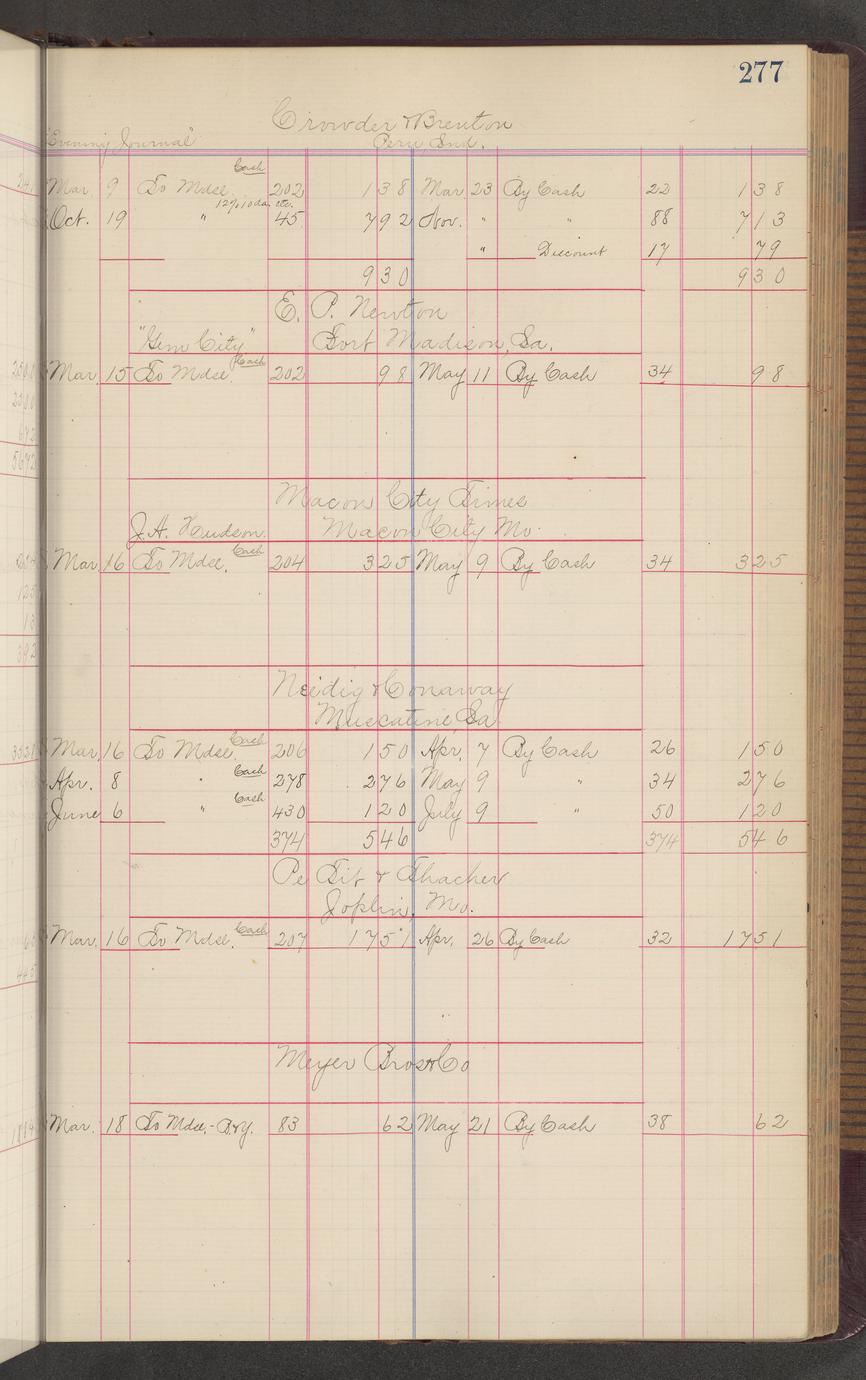 277
Crowder & Brenton
"Evening Journal" Peru Ind.
Cash
Mar. 9 To Mdse. 202 1 38 Mar 23 By Cash 22 1 38
12% 10 da. etc.
Oct. 19 " 45 7 92 Nov. " " 88 7 13
" Discount 17 79
9 30 9 30
E. P. Newton
"Gem City" Fort Madison, Ia.
Cash
Mar. 15 To Mdse. 202 98 May 11 By Cash 34 98
Macon City Times
J. A. Hudson. Macon City Mo.
Cash
Mar. 16 To Mdse. 204 3 25 May 9 By Cash 34 3 25
Neidig & Conaway
Muscatine, Ia.
Cash
Mar. 16 To Mdse. 206 1 50 Apr. 7 By Cash 26 1 50
Cash
Apr. 8 " 278 2 76 May 9 " 34 2 76
Cash
June 6 " 430 1 20 July 9 " 50 1 20
374 5 46 374 5 46
Pe Tit & Thacher
Joplin, Mo.
Cash
Mar. 16 To Mdse. 207 17 51 Apr. 26 By Cash 32 17 51
Meyer Bros & Co
Mar. 18 To Mdse.- B&J. 83 62 May 21 By Cash 38 62